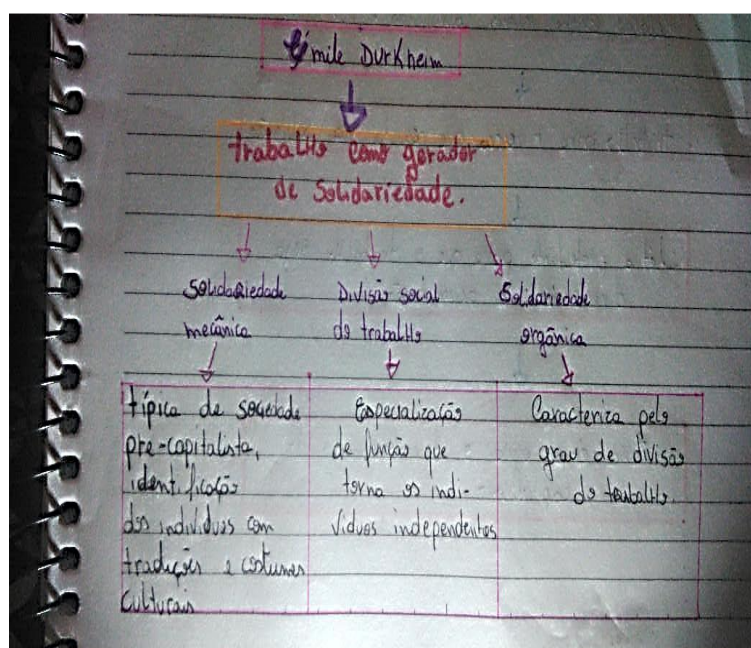 Émile Durkheim
trabalho como gerador
de Solidariedade.
Solidariedade
mecânica
Divisão social
do trabalho
Solidariedade
orgânica
típica de sociedade
pré-capitalista,
identificação
dos indivíduos com
tradições e costumes
culturais
Especialização
de função que
torna os indi-
víduos independentes
Caracteriza pelo
grau de divisão
do trabalho.